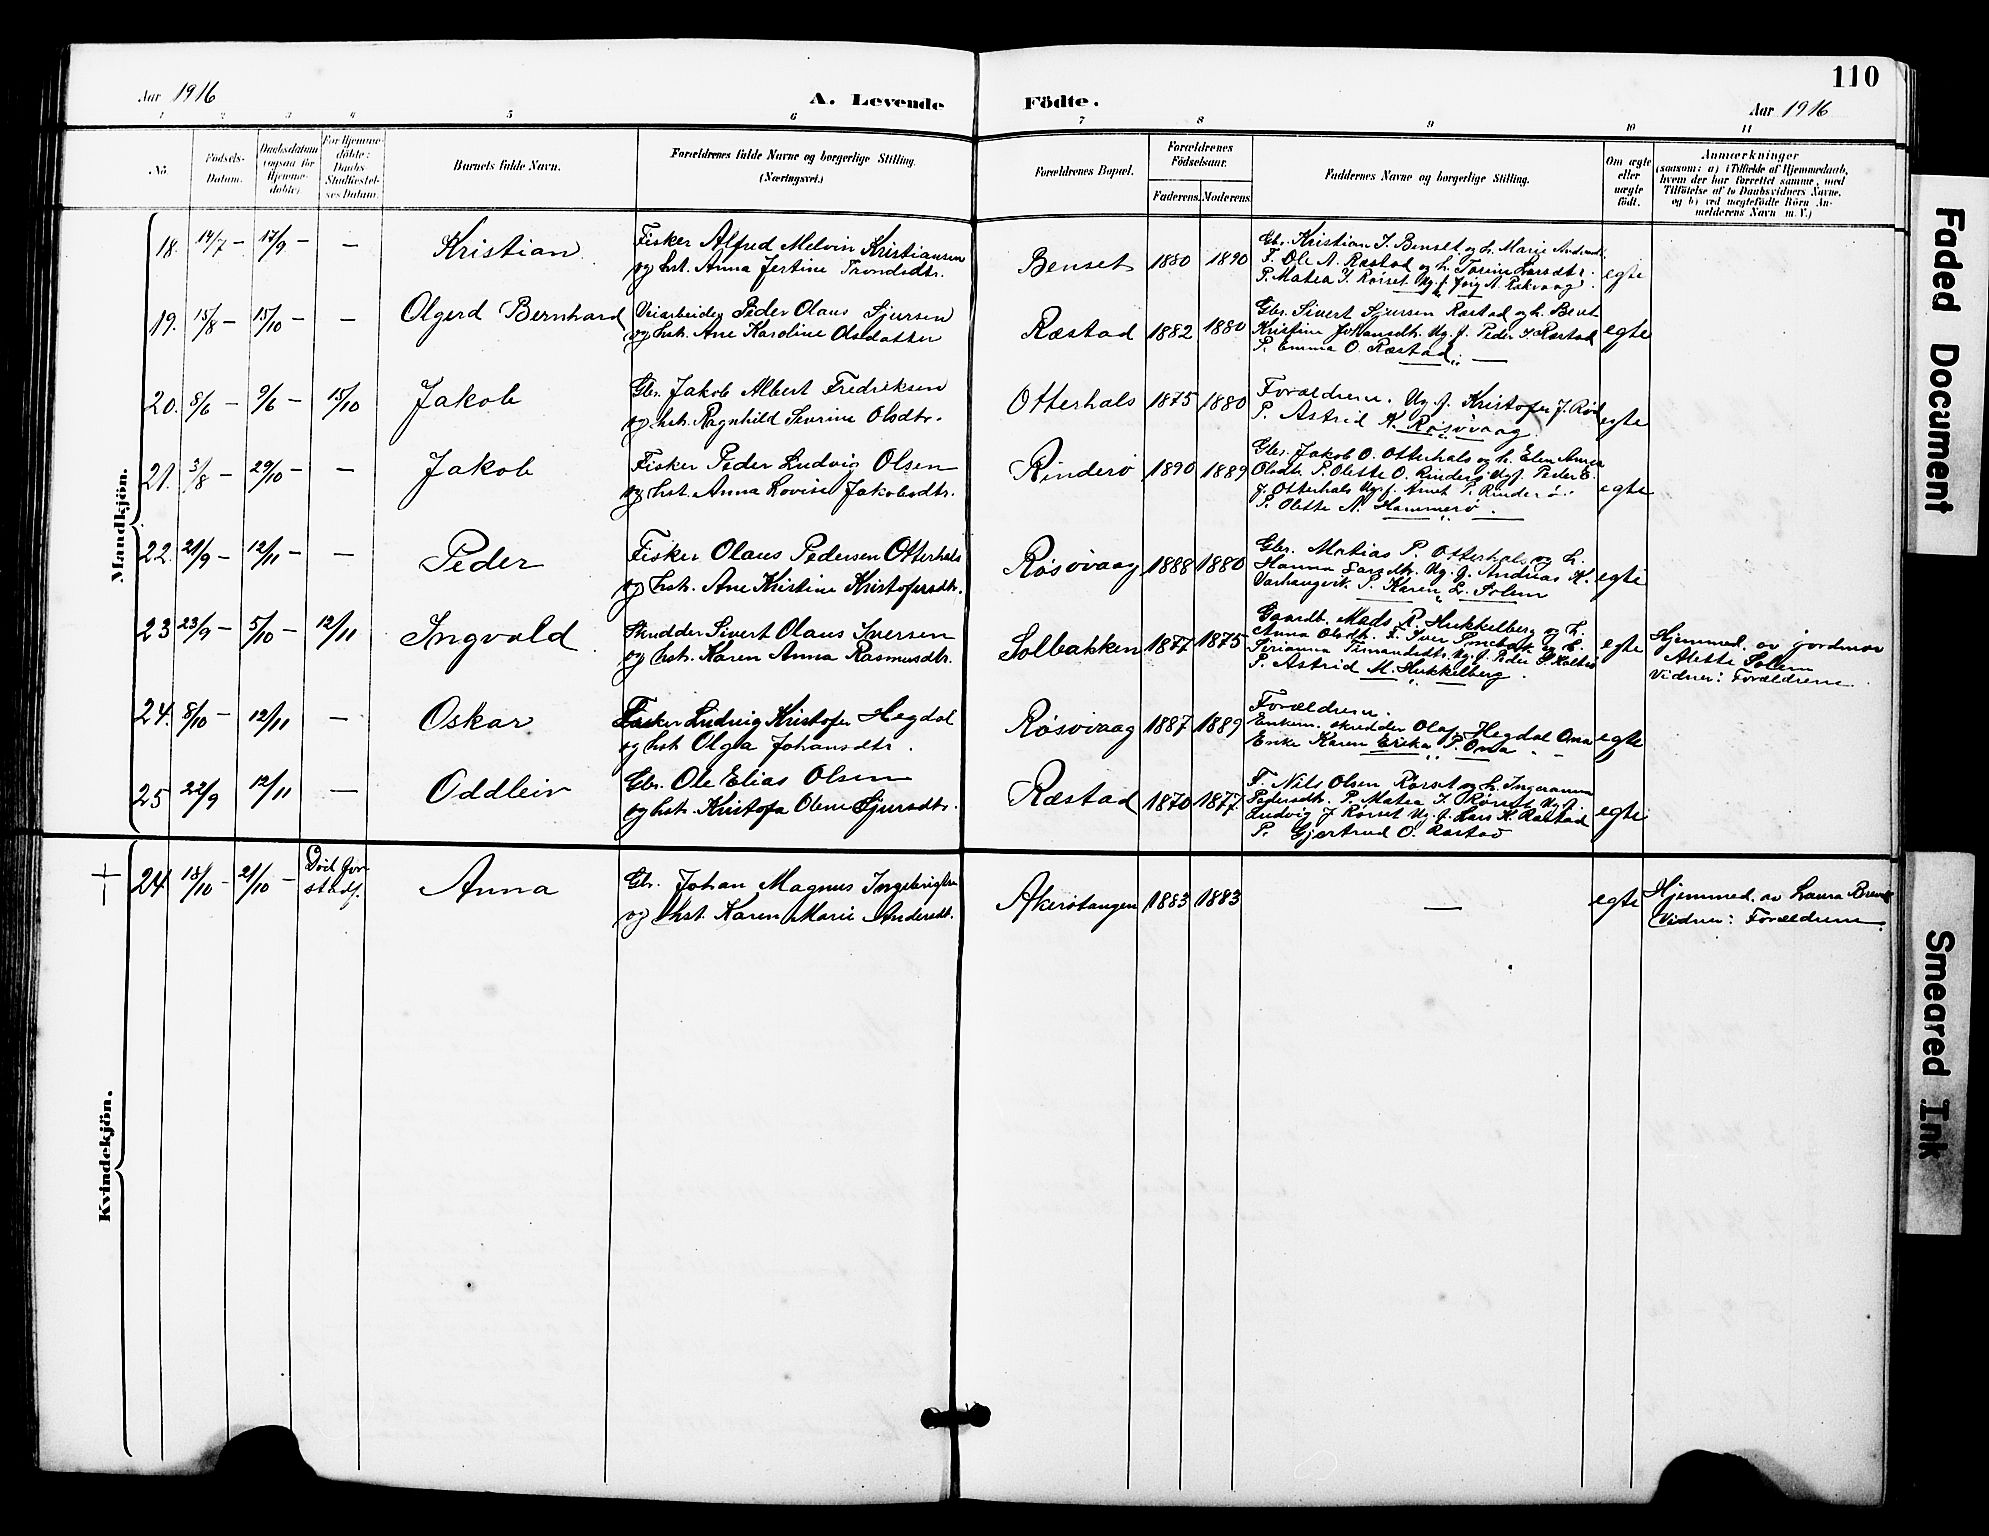 110
Aar 1916
A. Levende
Födte.
Aar 1916
1 2 3 4 5 6 7 8 9 10 11
No.
Födsels-
Datum.
Daabsdatum
(ogsaa för
Hjemme-
döbte)
For Hjemme-
döbte:
Daabs
Stadfæstel-
ses Datum.
Barnets fulde Navn.
Forældrenes fulde Navne og borgerlige Stilling.
(Næringsvei.)
Forældrenes Bopæl.
Forældrenes
Födselsaar.
Faderens. Moderens.
Faddernes Navne og borgerlige Stilling.
Om ægte
eller
uægte
födt.
Anmærkninger
(saasom: a) i Tilfælde af Hjemmedaab,
hvem der har forrettet samme, med
Tilföielse af to Daabsvidners Navne.
og b) ved uægtefödte Börn An-
melderens Navn m. V.)
Mandkjön.
18. 14/7 – 17/9 – –
Kristian
Fisker Alfred Melvin Kristiansen
og hst. Anna Jertine Trondsdtr.
Benset 1880 1890
Gbr. Kristian J. Benset og h. Marie
F. Ole A. Ræstad og h. Larsdtr.
P. Matea J. Rørset Ug. f. A.
egte
19. 15/8 – 15/10 – –
Olgerd Bernhard
Veiarbeider Peder Olaus Sjursen
og hst. Ane Karoline Olsdatter
Ræstad 1882 1880
Gbr. Sivert Sjursen Ræstad og h. Berit
Kristine Johansdtr. Ug. f. Peder S. Ræstad
P. Emma O. Ræstad
egte
20. 5/6 – 9/6 – 15/10
Jakob
Gbr. Jakob Albert Fredriksen
og hst. Ragnhild Severine Olsdtr.
Otterhals 1875 1880
Forældrene. Ug. f. Kristofer J.
P. Astrid K. Røsovaag
egte
21. 3/8 – 29/10 – –
Jakob
Fisker Peder Ludvig Olsen
og hst. Anna Lovise Jakobsdtr.
Rinderö 1890 1889
Gbr. Jakob O. Otterhals og h. Elen Anna
Olsdtr. P. Olette O. Rinderö Ug. f. Peder E.
J. Otterhals Ug. f. P. Rinderö
P. Olette N. Hammerö
egte
22. 21/9 – 12/11 – –
Peder
Fisker Olaus Pedersen Otterhals
og hst. Ane Kristine Kristofersdtr.
Røsovaag 1888 1880
Gbr. Matias P. Otterhals og h.
Hanna Larsdtr. Ug. f. Andreas K.
Varhaugvik P. Karen L. Solem
egte
23 23/9 – 5/10 – 12/11
Ingvald
Skrædder Sivert Olaus Iversen
og hst. Karen Anna Rasmusdtr.
Solbakken 1877 1875
Gaardb. Mads R. Hukkelberg og h.
Anna Olsdtr. F. Iver og h.
Ug. f. Peder S.
P. Astrid M. Hukkelberg
egte
Hjemmed. av jordmor
Alette Solem
Vidner: Forældrene
24. 8/10 – 12/11 –
Oskar
Fisker Ludvig Kristofer Hegdal
og hst. Olga Johansdtr.
Røsovaag 1887 1889
Forældrene.
Enkem. skrædder Olaf Hegdal Ona
Enke Karen Erika P. Ona
egte
25 22/9 12/11 –
Oddleiv
Gbr. Ole Elias Olsen
og hst. Kristofa Oline Sjursdtr.
Ræstad 1870 1877
F. Nils Olsen Rørset og h. Ingeranna
Pedersdtr. P. Matea J. Rørset Ug. f.
Ludvig J. Rørset Ug. f. Lars K. Ræstad
P. Gjertrud O. Ræstad
egte
Kvindekjön.
24 18/10 – 21/10 –
Död för
stadf.
Anna
Gbr. Johan Magnus Ingebrigtsen
og hst. Karen Marie Andersdtr.
Akerstangen 1883 1883
–
egte
Hjemmed. av Laura
Vidner: Forældrene
Faded Document
Smeared Ink